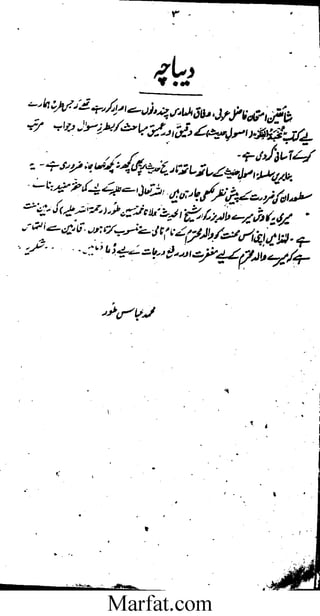 ۳
دیباچہ
شائقین امتحان فاضل عربی، وفاق المدارس چند دنوں سے اصرار کر رہے تھے کہ جس طرح ہمارے
لیے کتاب نخبۃ الفکر اصول حدیث کے دقیق اور عمیق مباحث کو بطرز سوال و جواب مرتب
کر کے آسانی کر دی ہے۔
بنابریں سلسلہ اصول حدیث کے ساتھ ساتھ تاریخ حدیث پر بھی کچھ نہ کچھ لکھا جانا ضروری ہے۔ یہ
سطور ان کی ضرورت کے پیش نظر لکھی جا رہی ہیں اللہ تعالیٰ اسے طلبہ کے لیے کما حقہ مفید بنائے۔
میری یہ کاوش میرے والد بزرگوار شیخ الحدیث مولانا محمد حسین طور رحمۃ اللہ علیہ کی رہین منت
ہے۔ لہٰذا میں اپنی اس محنت کو والد محترم کے نام نامی سے منسوب کرتا ہوں۔ قارئین سے التماس
ہے کہ میرے والد محترم کے لیے مغفرت اور رفع درجات کے لیے دعا فرمائیں۔ شکریہ
محمد عباس طور
Marfat.com